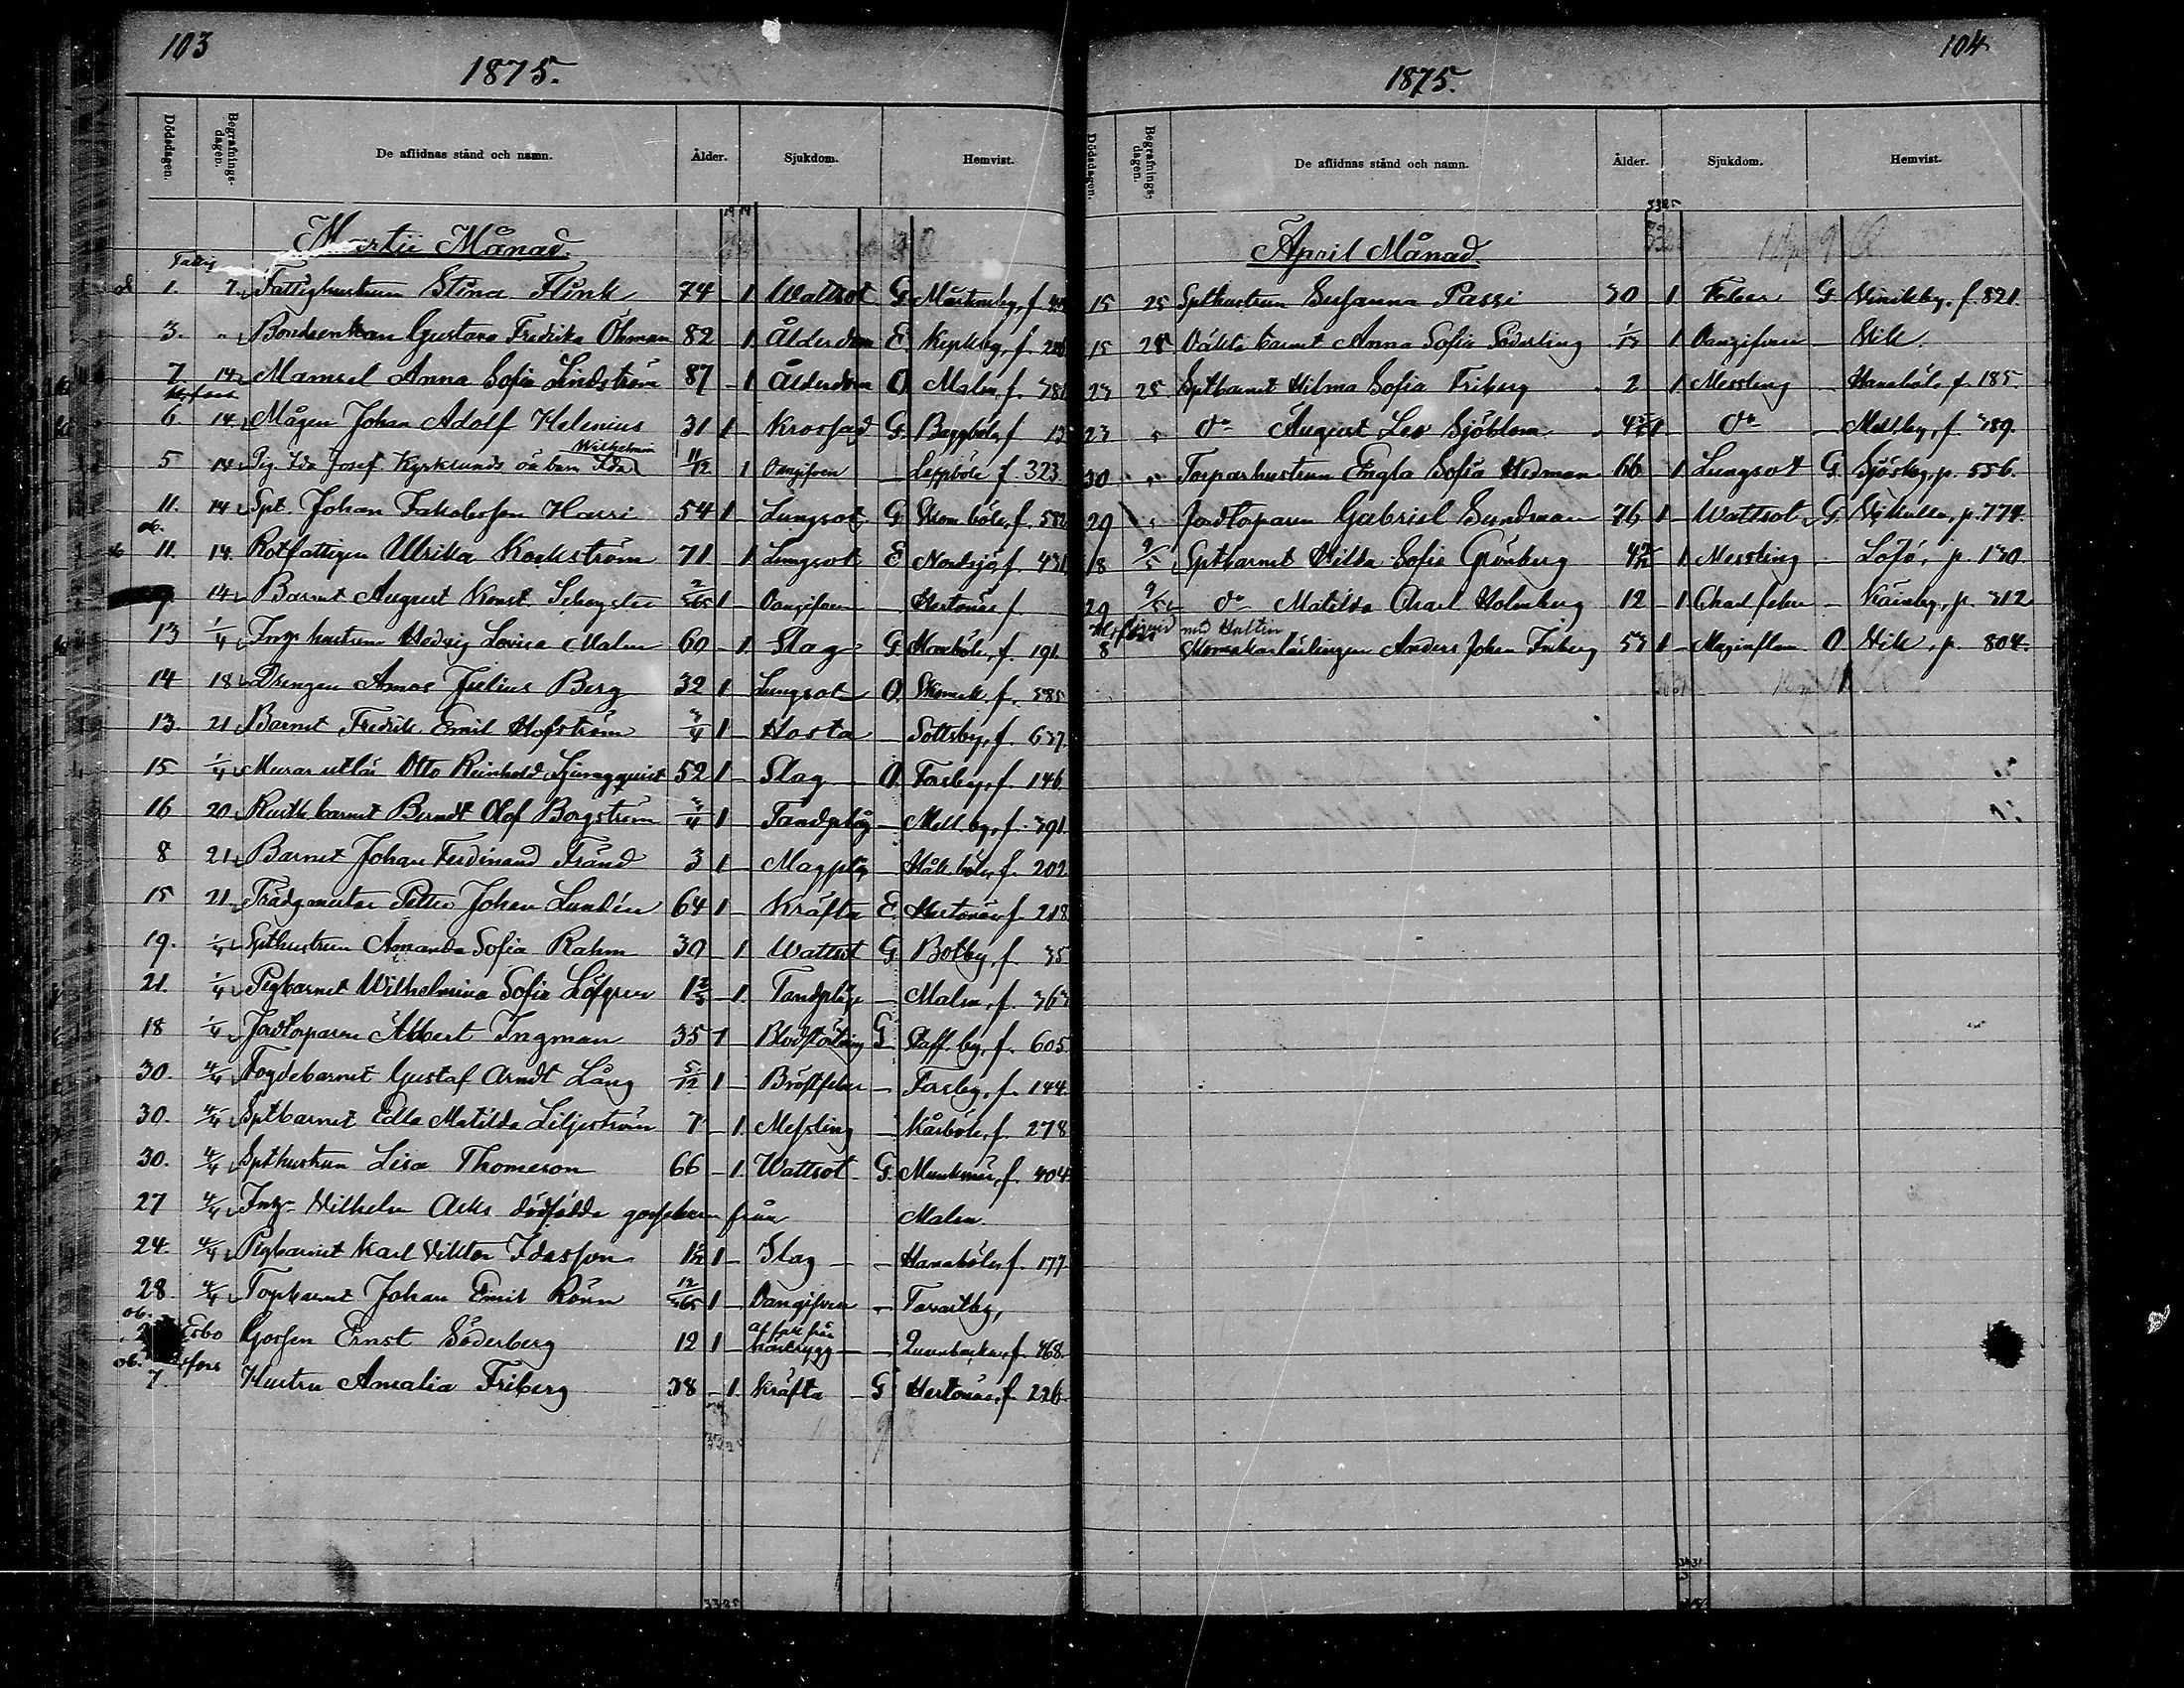 103
1875.
Dödsdagen. Begrafnings-dagen. De aflidnas stånd och namn. Ålder. Sjukdom. Hemvist.
Martii Månad.
1. 7. Fattighustrun Stina Flink 74 - 1 Wattsot G. Mårtensby, f.
3. " Bondeenkan Gustava Fredrika Öhman 82 1. Ålderdom E.
7 14. Mamsel Anna Sofia Lindström 87 - 1 Ålderdom O. Malm, f.
6. 14. Mågen Johan Adolf Helenius 31 1 - Krossad G. Baggböle, f
Wilhelmin
5 14. Pig. Ida Josef. Kyrklunds oä barn Ida 11/12 1 Oangifven - f. 323
11. 14. Spt. Johan Jakobsson Harri 54 1 - Lungsot G. böle, f. 582
ob.
11. 14. Rotfattigen Ulrika Kockström 71 - 1. Lungsot E Nordsjö, f. 431
14. Barnet August Konst. 2/365 1 - Oangifven - Hertonäs f.
13 1/4 Ing. hustrun Hedvig Lovisa Malm 60 - 1. Slag G. Hanaböle, f. 191.
14 18. Drengen Amos Julius Berg 32 1 - Lungsot O. f. 585
13. 21. Barnet Fredrik Emil Hofström 3/4 1 - Hosta - Sottsby, f. 637.
15. 1/4 Otto Reinhold Ljungqvist 52 1 - Slag - O. Forsby, f. 146.
16 20. barnet Berndt Olof Borgström 3/4 1 - Tandplåg - Mell.by, f. 391.
8 21. Barnet Johan Ferdinand Fränd 3 1 - Magplåg - Håk.böle, f. 202
15 21. Petter Johan Lundén 64 1 - Kräfta E. Hertonäs, f. 218
19. 1/4 Spthustrun Amanda Sofia Rahm 30 - 1. Wattsot G. Botby, f. 35
21. 1/4 Pigbarnet Wilhelmina Sofia Löfgren - 1. Tandplåg - Malm, f. 363
18 1/4 Jordtorparen Albert Ingman 35 1 - Blodstörtning G. Staff.by, f. 605.
30. 4/4 Fogdebarnet Gustaf Arndt Lång 5/12 1 - Bröstfeber - Forsby, f. 144.
30. 4/4 Sptbarnet Edla Matilda Liljeström 7 - 1. Messling - Kårböle, f. 278
30. 4/4 Spthustrun Lisa Thomeson 66 - 1. Wattsot G. f. 404
27 4/4 Ing. Wilhelm Acks dödfödda gossebarn från Malm.
24. 4/4 Pigbarnet Karl Viktor Idasson 1 - Slag - - Hanaböle, f. 177
28. 4/4 Torpbarnet Johan Emil Rönn 12/365 1 - Oangifven - Tavastby,
ob.
Esbo Gossen Ernst Söderberg 12 1 - - f. 468.
ob.
7. Hustru Amalia Friberg 38 - 1. Kräfta - G Hertonäs, f. 226.
104
1875.
Dödsdagen. Begrafnings-dagen. De aflidnas stånd och namn. Ålder. Sjukdom. Hemvist.
April Månad.
15 25 Spthustrun Susanna Passi 30 - 1 Feber G. Vinikby, f. 821.
15 25 barnet Anna Sofia Söderling 1 Oangifven - Vik.
23 25. Sptbarnet Hilma Sofia Friberg 2 1. Messling - Hanaböle f. 185.
23 " do August Leo Sjöblom 1 - do - Mellby, f. 389.
30 " Torparhustrun Engla Sofia Hedman 66 - 1 Lungsot G. p. 556.
29 " Jordtorparen Gabriel Sundman 76 1 - Wattsot G. p. 774.
18 9/5 Sptbarnet Hilda Sofia Grönberg 1 Messling - Löfö, p. 130.
29 9/5 do Matilda Charl. Holmberg 12 - 1 Charl.feber - p. 312
8 Anders Johan Friberg 53 1 - Maginflam. O Vik, p. 804.